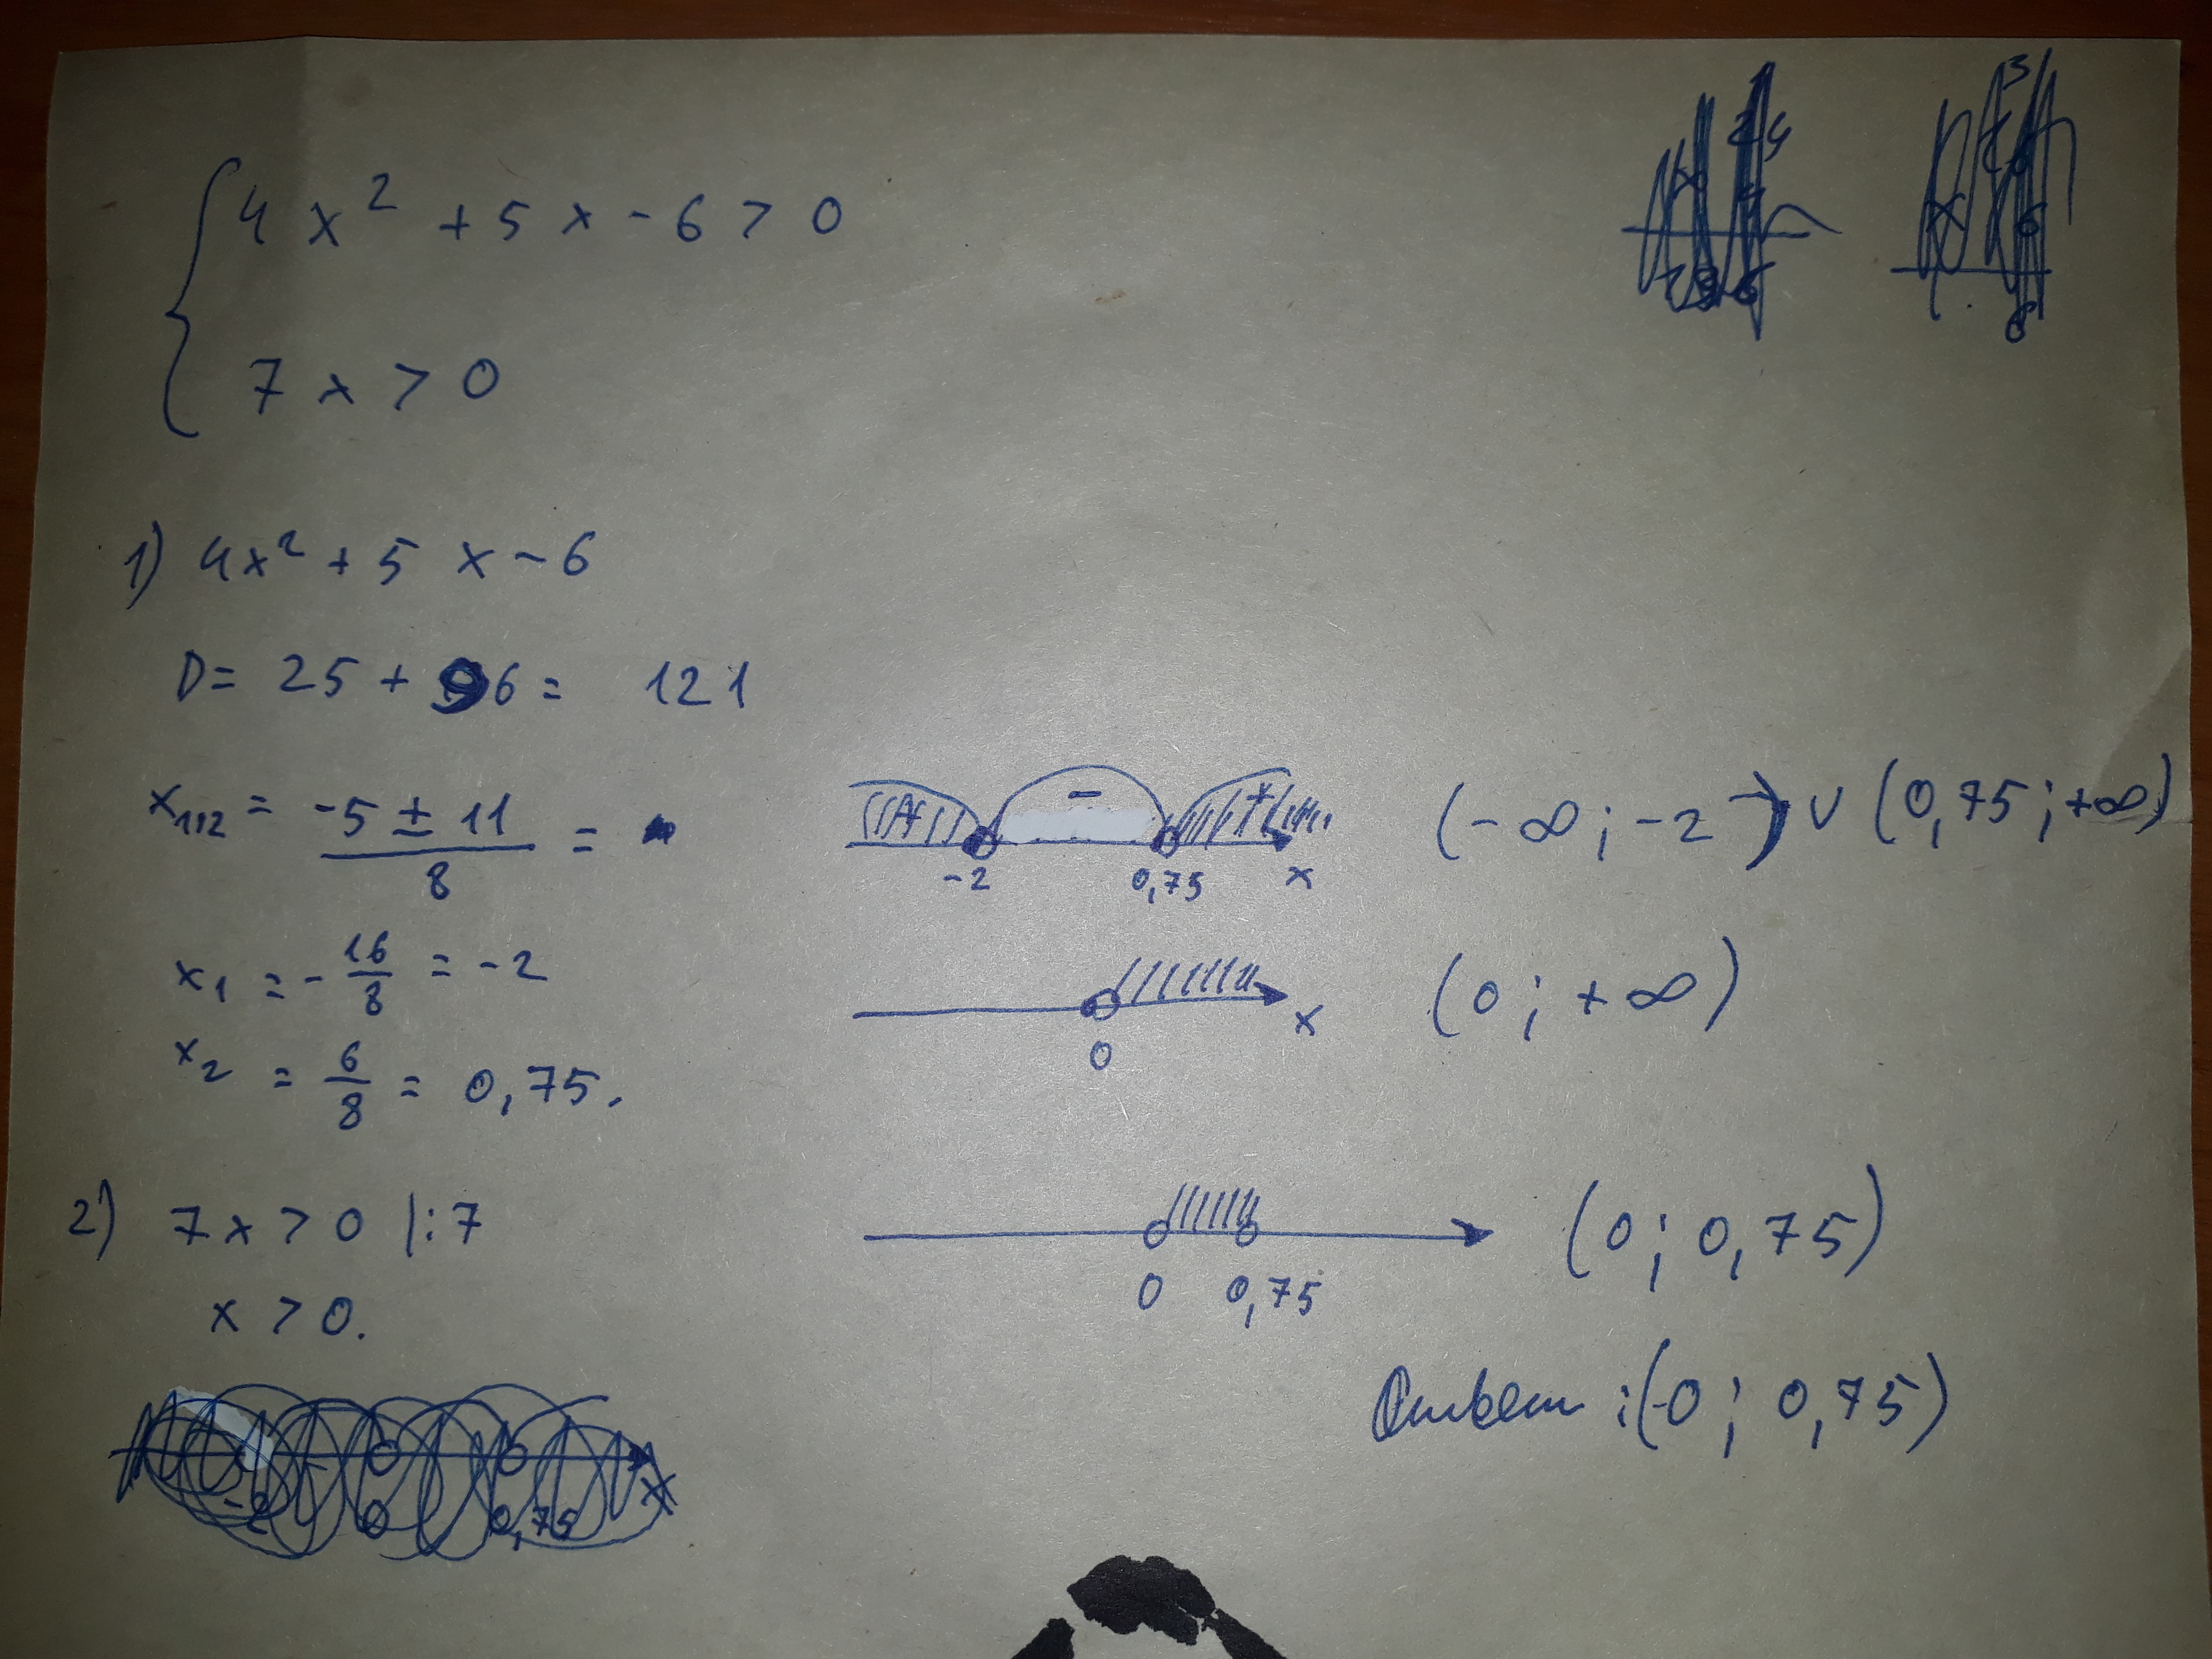 4x² + 5x - 6 > 0
7x > 0
1) 4x² + 5x - 6
D = 25 + 96 = 121
x₁,₂ = (-5 ± 11)/8 =
x₁ = - 16/8 = -2
x₂ = 6/8 = 0,75.
2) 7x > 0 |:7
x > 0.
+ - +
-2 0,75 x
(-∞; -2) ∪ (0,75; +∞)
0 x
(0; +∞)
0 0,75
(0; 0,75)
Ответ: (0; 0,75)
-2 0 0,75 x